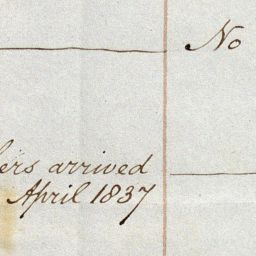 No
arrived
April 1837